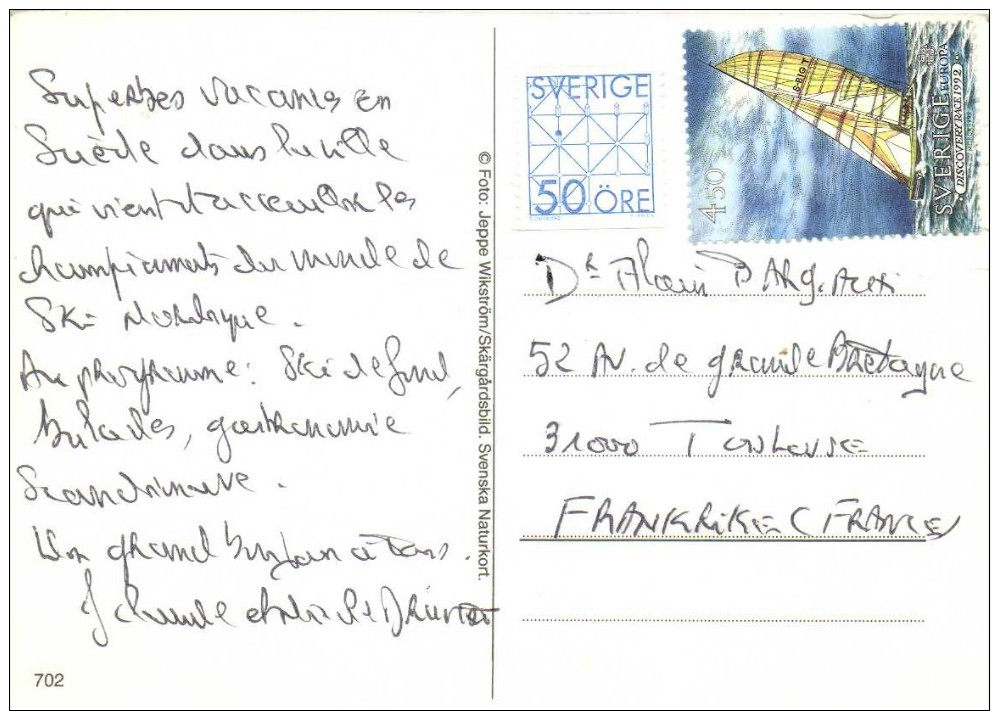 Superbes vacances en
Suède dans la ville
qui vient d'accueillir les
championnats du monde de
Ski Nordique.
Au programme: Ski de fond,
balades, gastronomie
Scandinave.
Un grand bonjour à tous.
702
© Foto: Jeppe Wikström/Skärgårdsbild. Svenska Naturkort.
SVERIGE
50 ÖRE
450
S-BIGT
SVERIGE EUROPA
DISCOVERY RACE 1992
Dr Alain
52 Av. de grande Bretagne
31000 Toulouse
FRANKRIKE (FRANCE)